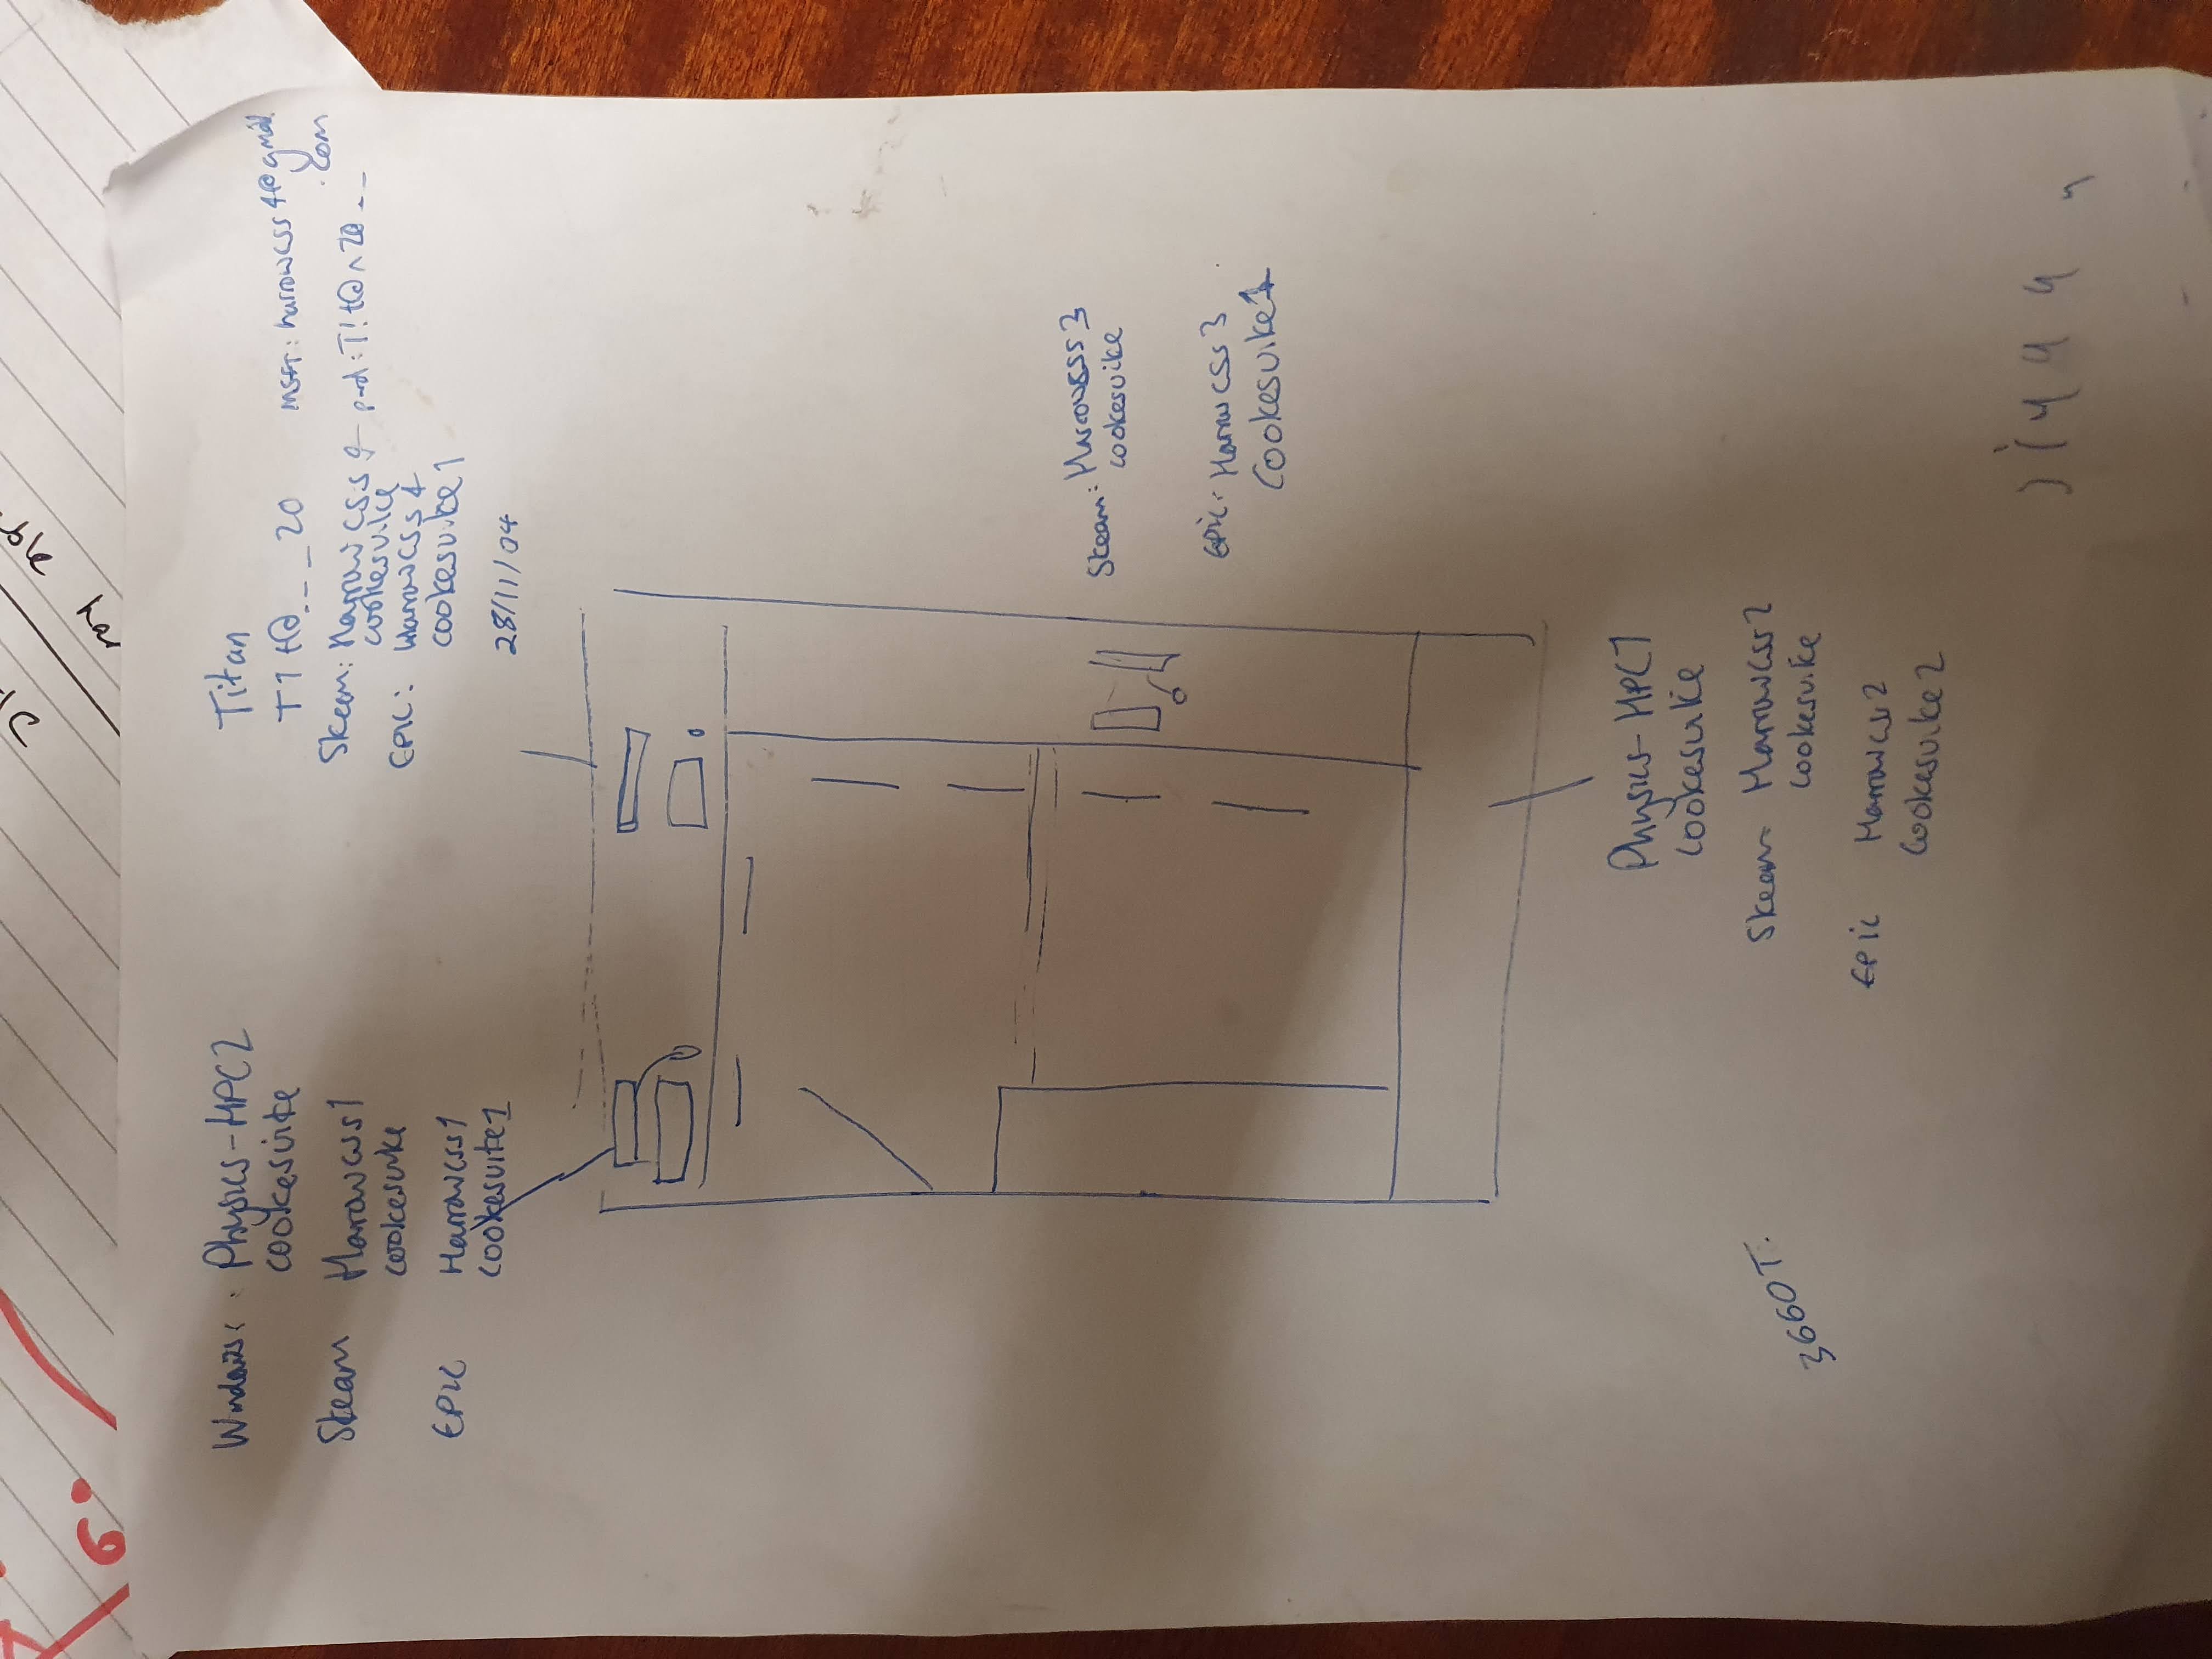 6.
Windows: Physics-HPC2
cookesuite
Steam Harrowcss1
cookesuite
EPIC Harrowcss1
cookesuite1
Titan
T1t@___20
msft: harrowcss4@gmail
.com
Steam: Harrowcss4
cookesuite
pwd: T!t@n20__
EPIC: Harrowcss4
cookesuite1
28/11/04
Steam: Harrowcss3
cookesuite
Epic: Harrowcss3
Cookesuite1
Physics-HPC1
cookesuite
Steam Harrowcss2
cookesuite
Epic Harrowcss2
Cookesuite2
3660T.